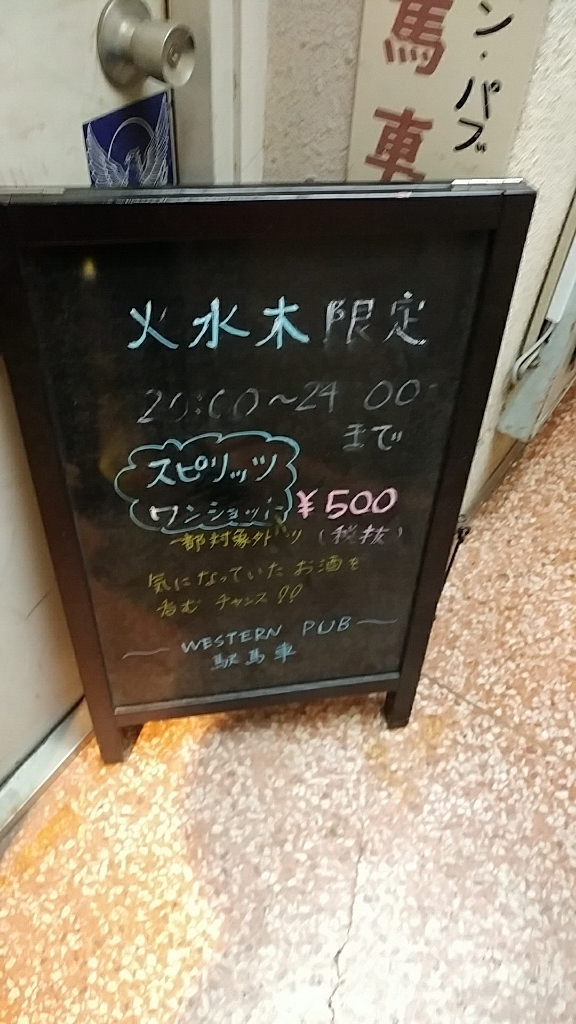 ン・パブ
馬車
火水木限定
20:00～24 00
まで
スピリッツ
ワンショット ¥500
一部対象外あり (税抜)
気になっていたお酒を
呑むチャンス!!
WESTERN PUB
駅馬車